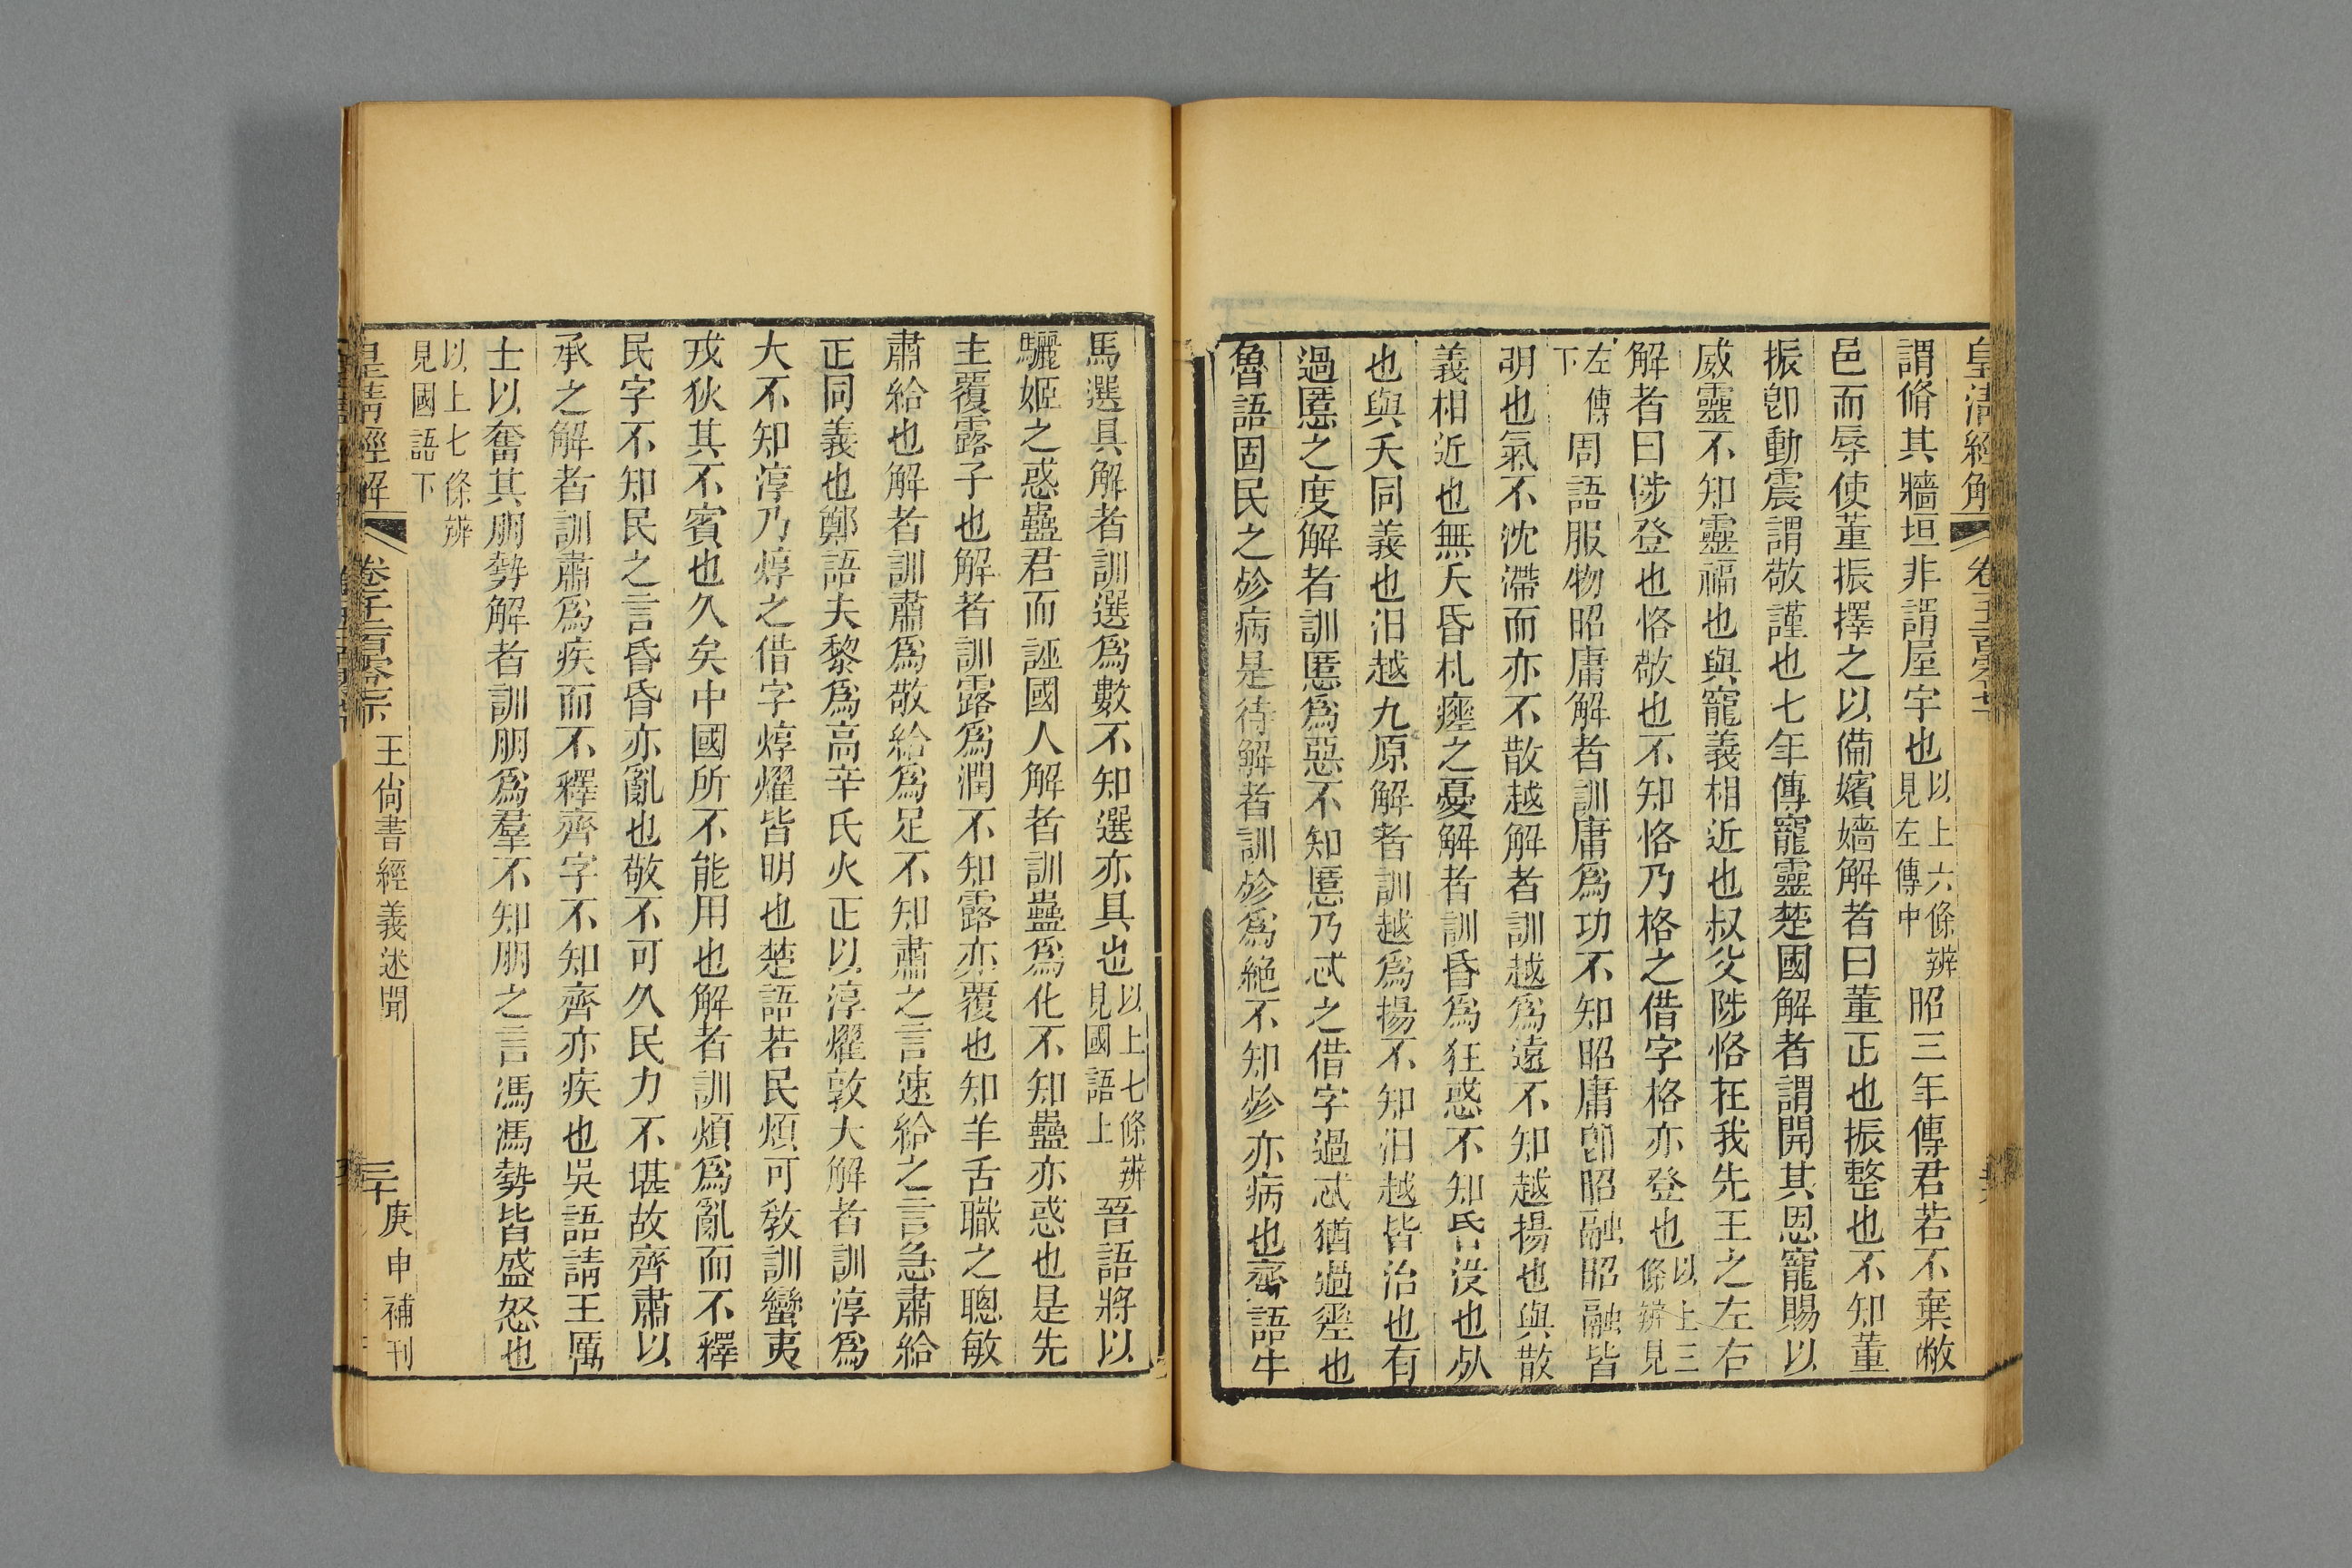 皇清經解
謂脩其牆垣非謂屋宇也以上六條辨見左傳中昭三年傳君若不棄敝
邑而辱使董振擇之以備嬪嬙解者曰董正也振整也不知董
振卽動震謂敬謹也七年傳寵靈楚國解者謂開其恩寵賜以
威靈不知靈福也與寵義相近也叔父陟恪在我先王之左右
解者曰陟登也恪敬也不知恪乃格之借字格亦登也以上三條辨見
左傳下周語服物昭庸解者訓庸爲功不知昭庸卽昭融昭融皆
明也氣不沈滯而亦不散越解者訓越爲遠不知越揚也與散
義相近也無夭昏札瘥之憂解者訓昏爲狂惑不知昏沒也
也與夭同義也汨越九原解者訓越爲揚不知汨越皆治也有
過慝之度解者訓慝爲惡不知慝乃忒之借字過忒猶過差也
魯語固民之殄病是待解者訓殄爲絶不知殄亦病也齊語牛
馬選具解者訓選爲數不知選亦具也以上七條辨見國語上晉語將以
驪姬之惑蠱君而誣國人解者訓蠱爲化不知蠱亦惑也是先
主覆露子也解者訓露爲潤不知露亦覆也知羊舌職之聰敏
肅給也解者訓肅爲敬給爲足不知肅之言速給之言急肅給
正同義也鄭語夫黎爲高辛氏火正以淳燿敦大解者訓淳爲
大不知淳乃焞之借字焞燿皆明也楚語若民煩可敎訓蠻夷
戎狄其不賓也久矣中國所不能用也解者訓煩爲亂而不釋
民字不知民之言昏昏亦亂也敬不可久民力不堪故齊肅以
承之解者訓肅爲疾而不釋齊字不知齊亦疾也吳語請王厲
士以奮其朋勢解者訓朋爲羣不知朋之言馮馮勢皆盛怒也
以上七條辨見國語下
皇清經解 王尙書經義述聞 三十 庚申補刊